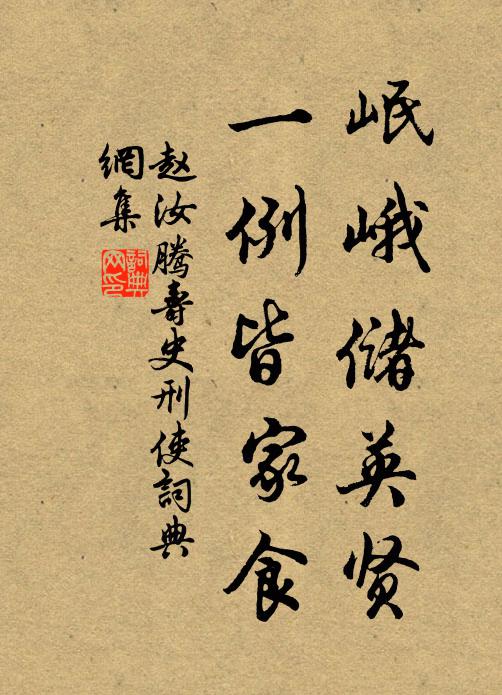 岷峨储英贤
一例皆家食
赵汝腾寿史刑使詞典
網集
詞典
网印